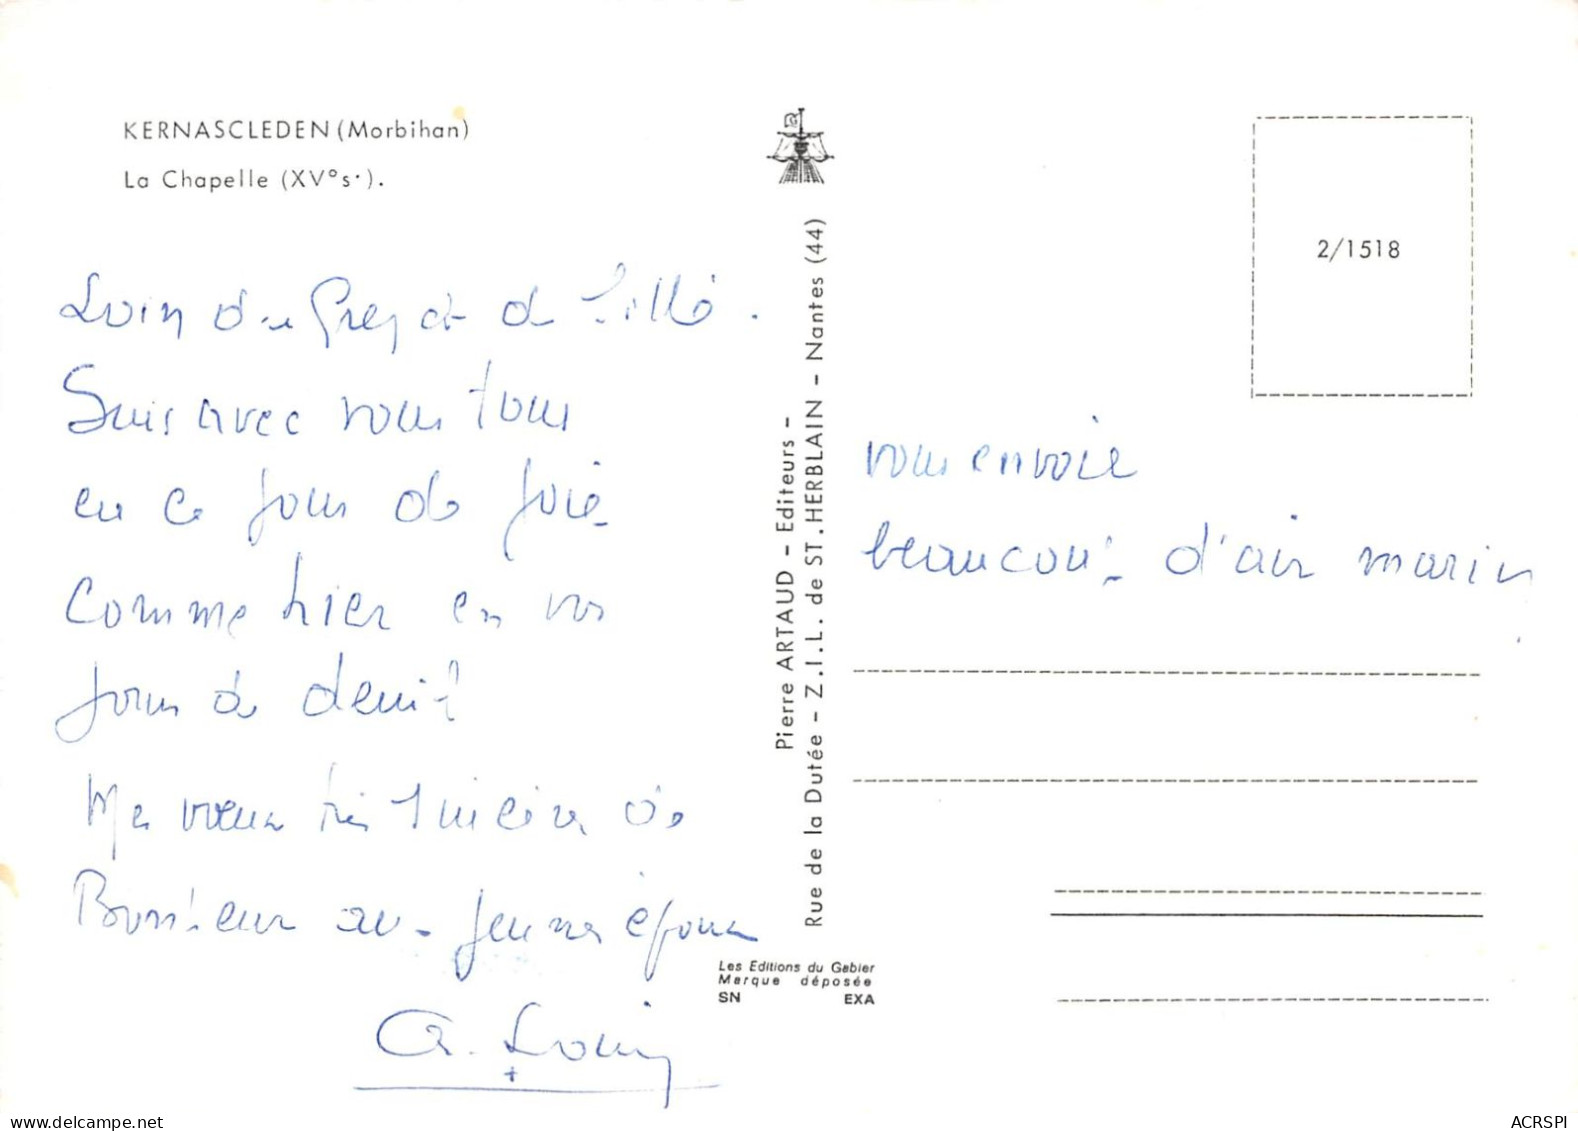 KERNASCLEDEN (Morbihan)
La Chapelle (XV°s·).
Loin du et de
Suis avec vous tous
en ce jour de joie
comme hier en vos
jours de deuil
Mes vœux très sincères de
Bonheur aux jeunes époux
vous envoie
beaucoup d'air marin
2/1518
Pierre ARTAUD - Editeurs -
Rue de la Dutée - Z.I.L. de ST.HERBLAIN - Nantes (44)
Les Editions du Gabier
Marque déposée
SN EXA
delcampe.net
ACRSPI